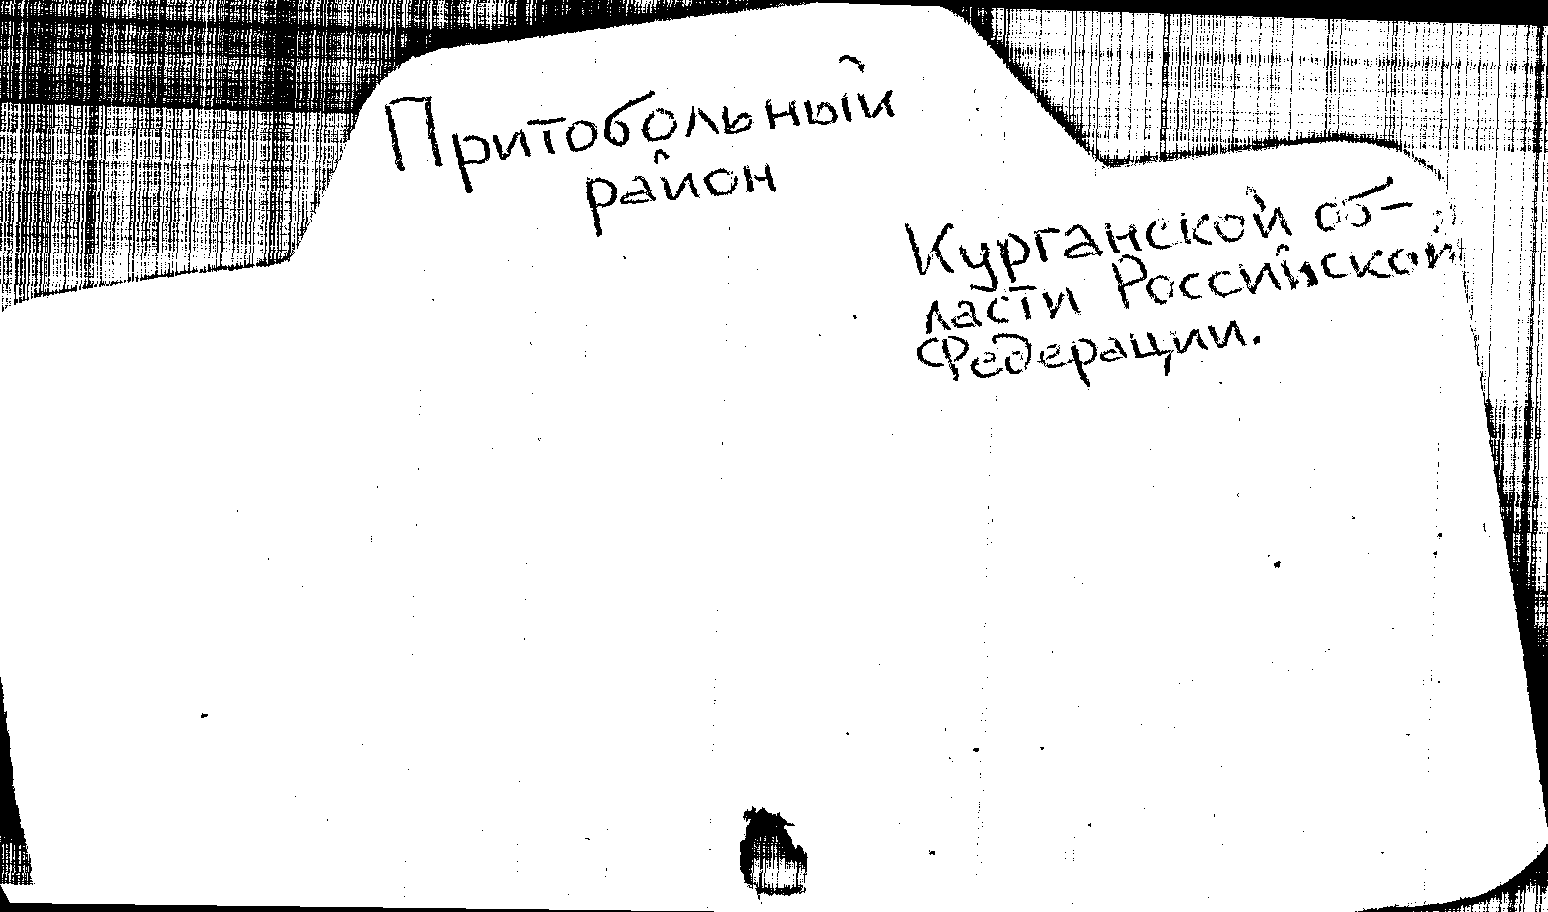 Притобольный
район
Курганской об-
ласти Российской
Федерации.